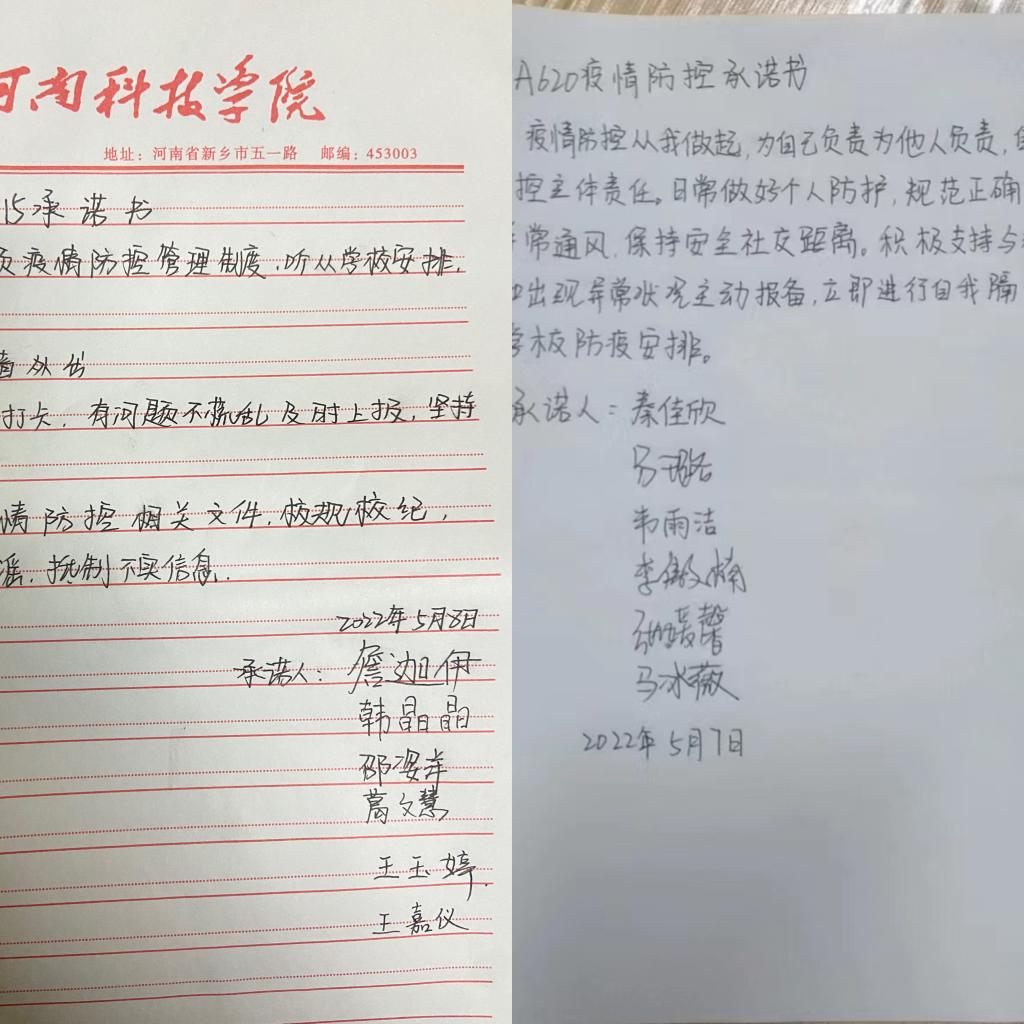 河南科技学院
地址：河南省新乡市五一路 邮编：453003
15承诺书
疫情防控管理制度，听从学校安排，
外出
打卡，有问题不慌乱及时上报，坚持
情防控相关文件，校规校纪，
谣，抵制不实信息．
2022年5月8日
承诺人：詹迦伊
韩晶晶
邵姿羊
葛文慧
王玉婷
王嘉仪
A620疫情防控承诺书
疫情防控从我做起，为自己负责为他人负责，自
控主体责任。日常做好个人防护，规范正确
常通风，保持安全社交距离。积极支持与
出现异常状况主动报备，立即进行自我隔
学校防疫安排。
承诺人：秦佳欣
韦雨洁
马冰薇
2022年5月7日